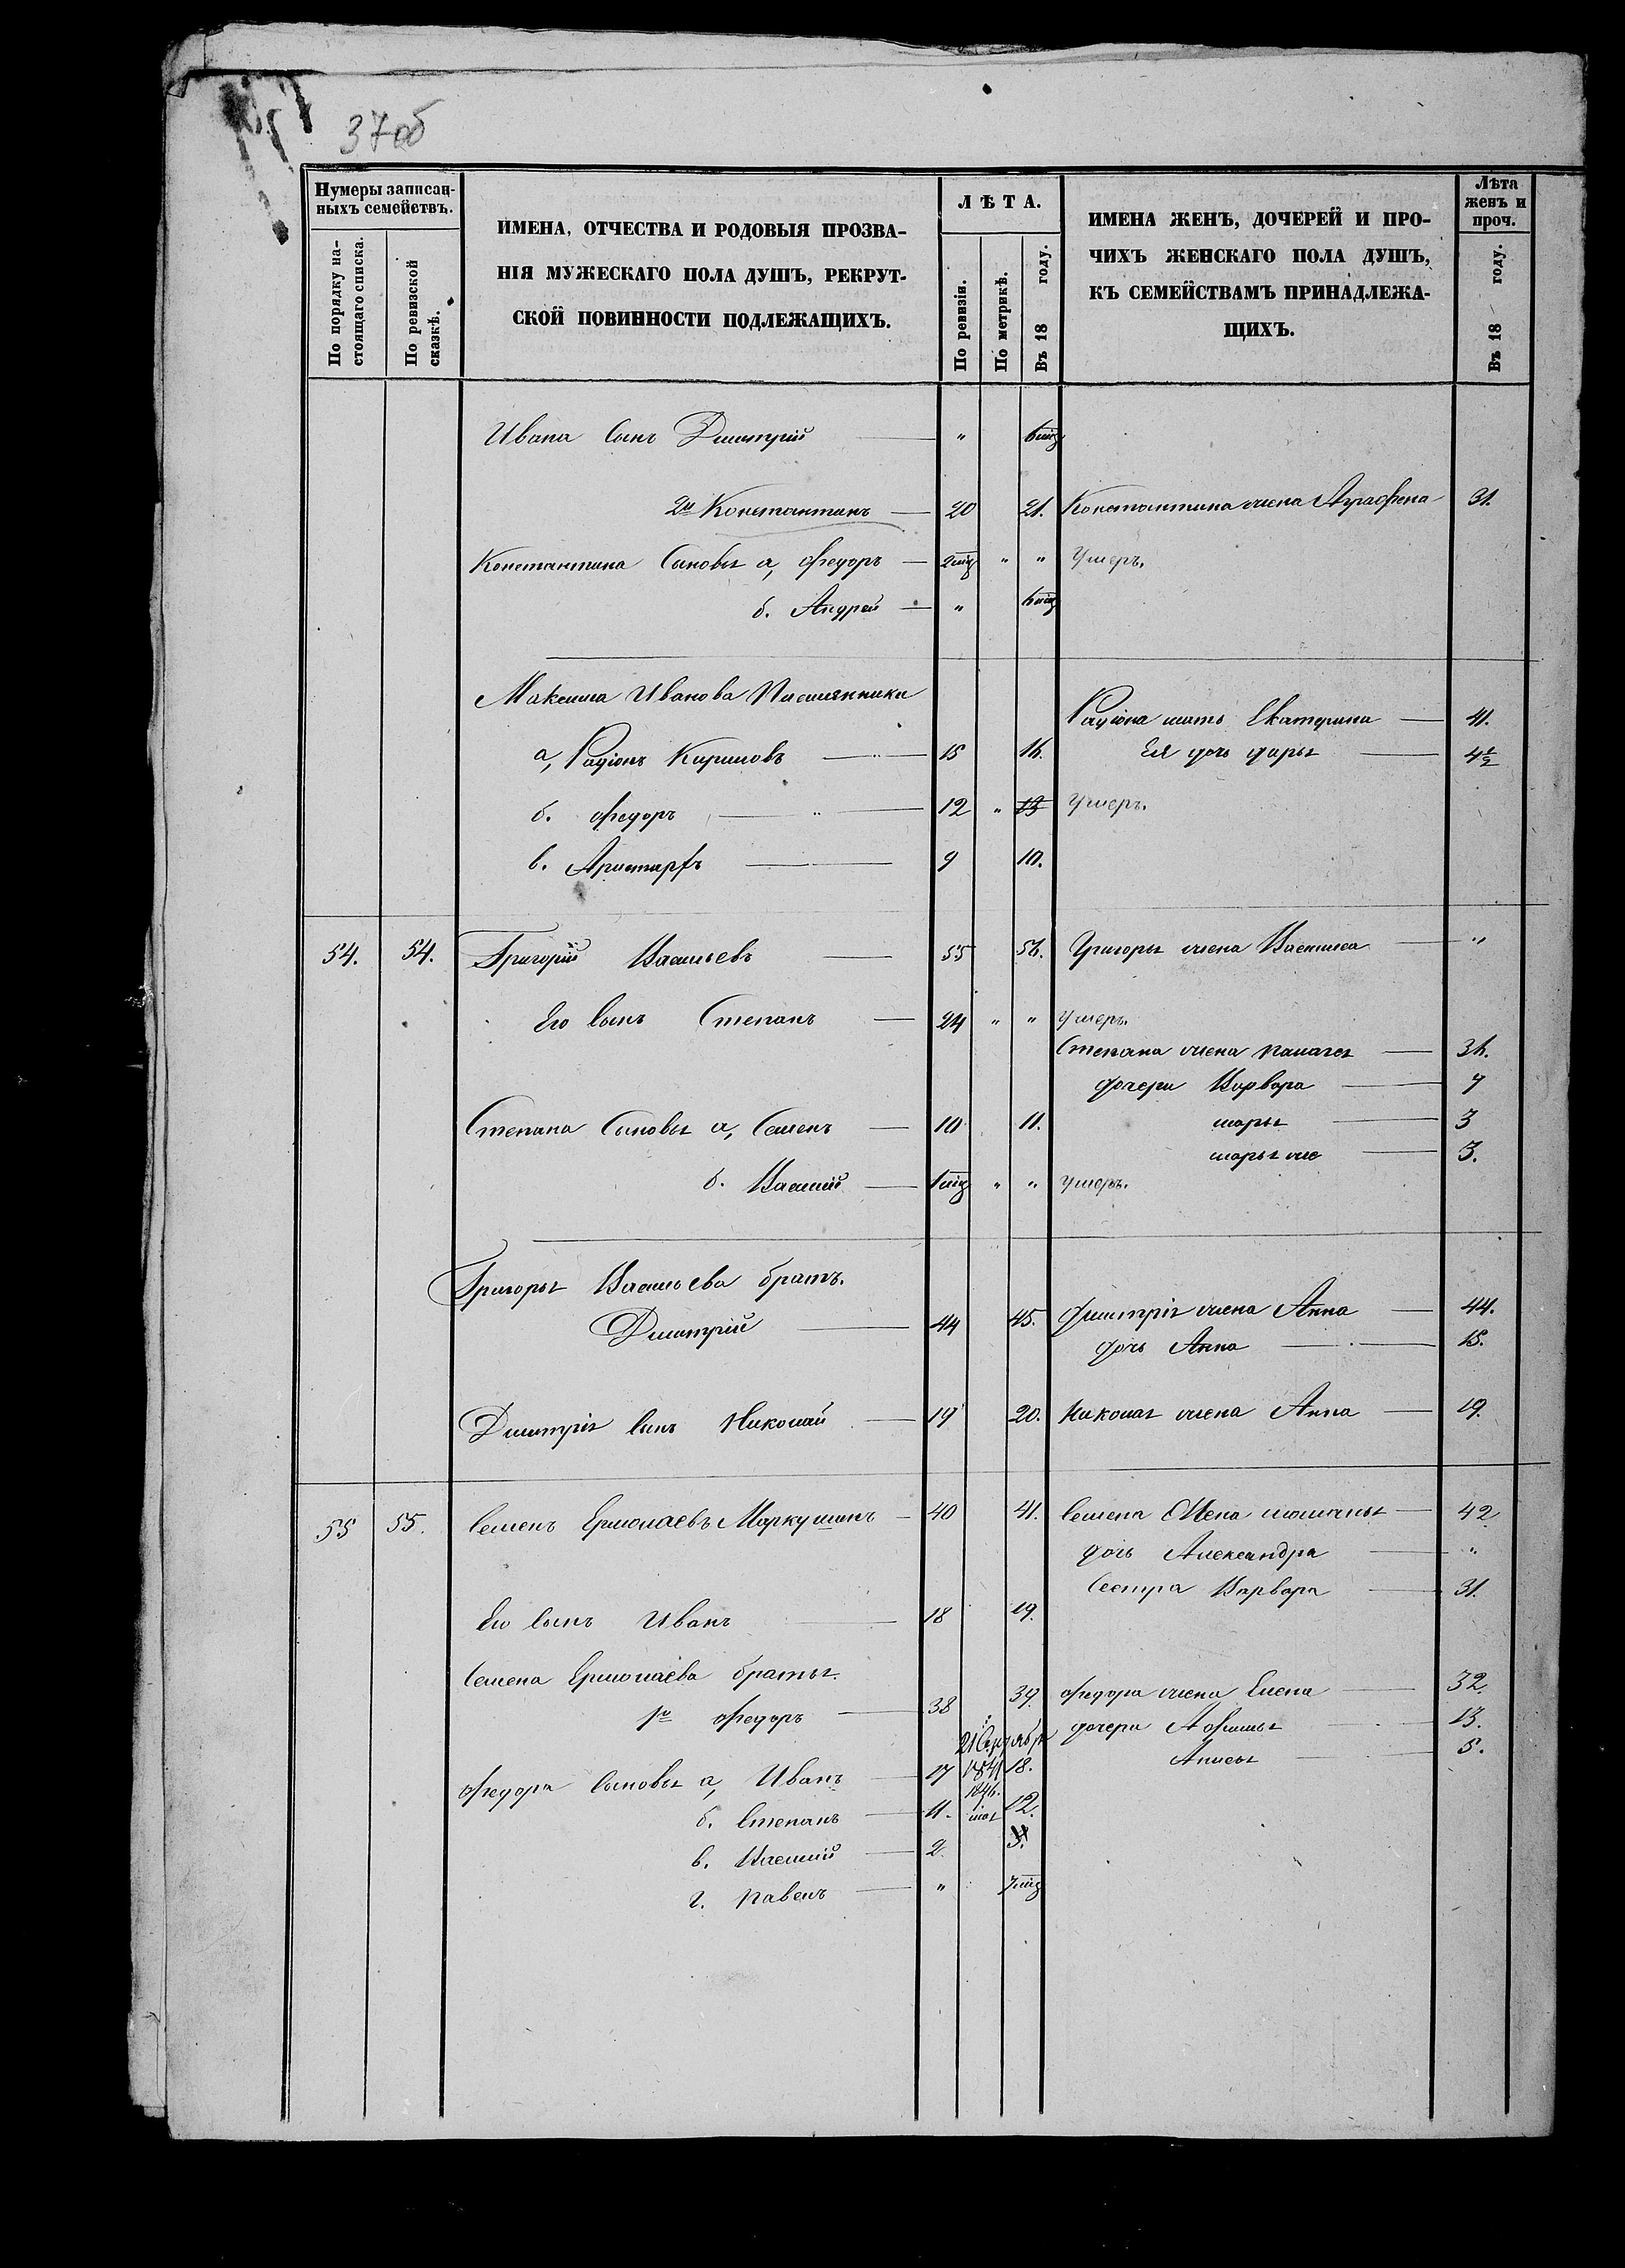 37об
Нумеры записан-
ныхъ семействъ.
По порядку на-
стоящаго списка.
По ревизской
сказкѣ.
ИМЕНА, ОТЧЕСТВА И РОДОВЫЯ ПРОЗВА-
НІЯ МУЖЕСКАГО ПОЛА ДУШЪ, РЕКРУТ-
СКОЙ ПОВИННОСТИ ПОДЛЕЖАЩИХЪ.
ЛѢТА.
По ревизіи.
По метрикѣ.
Въ 18 году.
ИМЕНА ЖЕНЪ, ДОЧЕРЕЙ И ПРО-
ЧИХЪ ЖЕНСКАГО ПОЛА ДУШЪ,
КЪ СЕМЕЙСТВАМЪ ПРИНАДЛЕЖА-
ЩИХЪ.
Лѣта
женъ и
проч.
Въ 18 году.
Ивана Сынъ Дмитрій — "
2й Константинъ — 20 21. Константина жена Аграфена 31.
Константина Сыновья а, Федоръ — " " Умеръ.
б. Андрей — "
Максима Иванова Племянники
Радіона мать Екатерина — 41.
а, Радіонъ Кириловъ — 15 16. Ея дочь Дарья — 4½
б. Федоръ — " — 12 " 13 Умеръ.
в. Аристархъ — 9 10.
54. 54. Григорій Васильевъ — 55 56. Григорья жена Василиса — "
Его Сынъ Степанъ — 24 " " Умеръ.
Степана жена Палагея — 36.
Дочери Варвара — 7
Степана Сыновья а, Семенъ — 10 11. Марья — 3
Марья же — 3.
б. Василій — " " Умеръ.
Григорья Васильева братъ.
Дмитрій — 44 45. Дмитрія жена Анна — 44.
Дочь Анна — 15.
Дмитрія Сынъ Николай — 19 20. Николая жена Анна — 19.
55 55. Семенъ Ермолаевъ Маркушинъ — 40 41. Семена Жена — 42
Дочь Александра — "
Сестра Варвара — 31.
Его Сынъ Иванъ — 18 19.
Семена Ермолаева братья.
1й Федоръ — 38 39. Федора жена Елена — 32.
Дочери Афимья — 13.
Федора Сыновья а, Иванъ — 17 1841 18. Анисья — 5.
б. Степанъ — 11. 1846. мая 12.
в. Василій — 2 3.
г. Павелъ — "